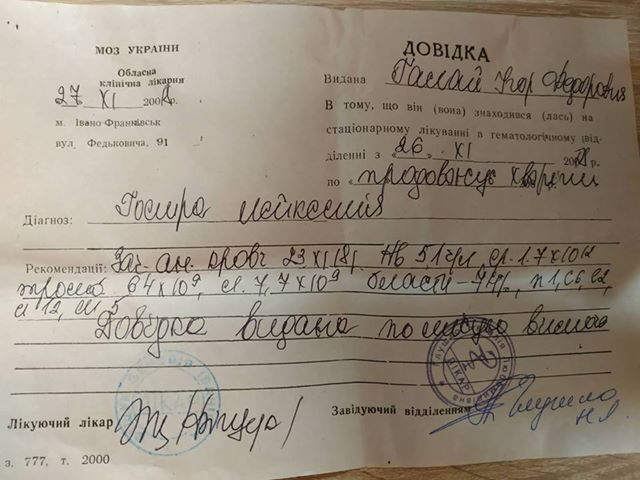 МОЗ УКРАЇНИ
Обласна
клінічна лікарня
27 XI 200 р.
м. Івано-Франківськ
вул. Федьковича, 91
ДОВІДКА
Видана Ігор Федорович
В тому, що він (вона) знаходився (лась) на
стаціонарному лікуванні в гематологічному від-
діленні з „26„ XI 200 р.
по „продовжує хворіти
Діагноз: Гостра лейкемія
Рекомендації: Заг. ан. крові 23 XI 18 Hb 51 г/л, ер. 1.7x10¹²
тромб. 64x10⁹, л. 7,7x10⁹ бласти - 74%, п1, С6, е2,
л 12, м 5
Довідка видана по місцю вимоги
Лікуючий лікар
Завідуючий відділенням
ЛІКАР
з. 777, т. 2000